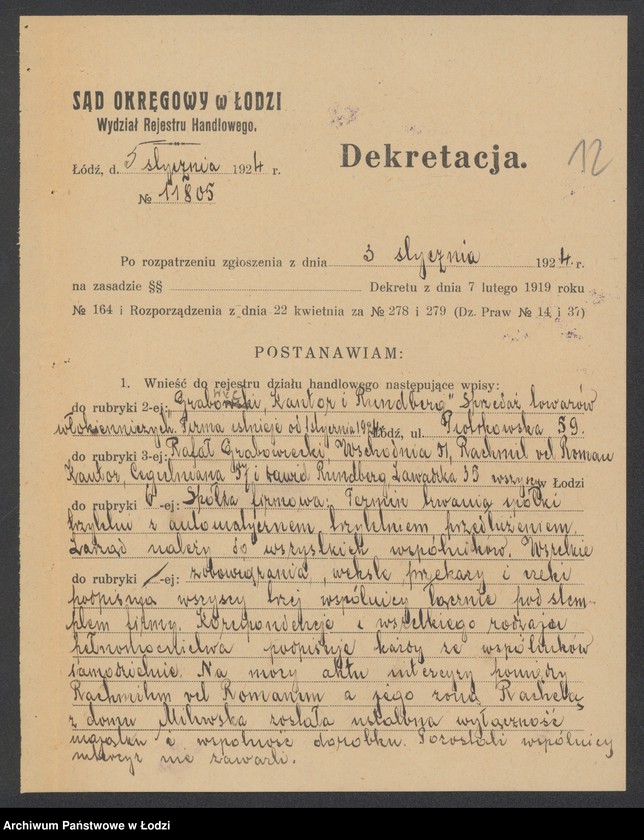 SĄD OKRĘGOWY w ŁODZI
Wydział Rejestru Handlowego.
Łódź, d. 5 stycznia 1924 r.
№ 11805
Dekretacja.
12
Po rozpatrzeniu zgłoszenia z dnia 3 stycznia 1924 r.
na zasadzie §§ Dekretu z dnia 7 lutego 1919 roku
№ 164 i Rozporządzenia z dnia 22 kwietnia za № 278 i 279 (Dz. Praw № 14 i 37)
POSTANAWIAM:
1. Wnieść do rejestru działu handlowego następujące wpisy:
do rubryki 2-ej: Kantor i Rundberg" Sprzedaż towarów
włókienniczych. Firma istnieje od 1 stycznia 1924 Łódź, ul. Piotrkowska 59.
do rubryki 3-ej: Rafał Grabowiecki, Wschodnia 71, Rachmil vel Roman
Kantor, Cegielniana 57 i Dawid Rundberg Zawadzka 33 wszyscy w Łodzi
do rubryki 6-ej: Spółka firmowa. Termin trwania spółki
trzyletni z automatycznem, trzyletniem przedłużeniem.
Zarząd należy do wszystkich wspólników. Wszelkie
do rubryki -ej: zobowiązania, weksle, przekazy i czeki
podpisują wszyscy trzej wspólnicy łącznie pod stem-
plem firmy. Korespondencję i wszelkiego rodzaju
pełnomocnictwa podpisuje każdy ze wspólników
samodzielnie. Na mocy aktu intercyzy pomiędzy
Rachmilem vel Romanem a jego żoną Rachelą
z domu Milewska została ustalona wyłączność
majątku i wspólność dorobku. Pozostali wspólnicy
intercyz nie zawarli.
Archiwum Państwowe w Łodzi